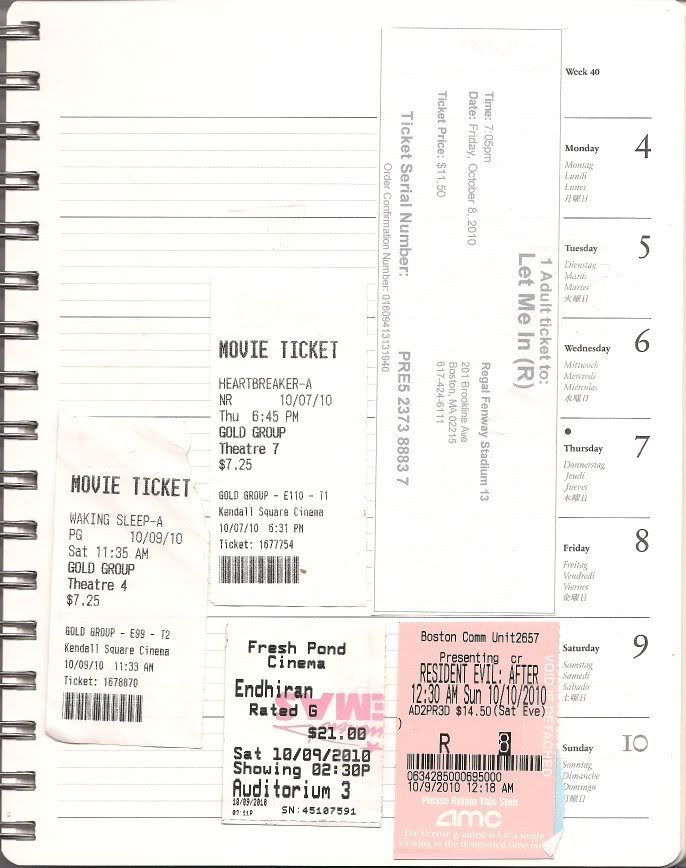 Week 40
Monday 4
Montag
Lundi
Lunes
月曜日
Tuesday 5
Dienstag
Mardi
Martes
火曜日
Wednesday 6
Mittwoch
Mercredi
Miércoles
水曜日
Thursday 7
Donnerstag
Jeudi
Jueves
木曜日
Friday 8
Freitag
Vendredi
Viernes
金曜日
Saturday 9
Samstag
Samedi
Sabado
土曜日
Sunday 10
Sonntag
Dimanche
Domingo
月曜日
1 Adult ticket to:
Let Me In (R)
Time: 7:05pm
Date: Friday, October 8, 2010
Ticket Price: $11.50
Regal Fenway Stadium 13
201 Brookline Ave
Boston, MA 02215
617-424-6111
Ticket Serial Number: PRE5 2373 8883 7
Order Confirmation Number: 01609413131940
MOVIE TICKET
HEARTBREAKER-A
NR 10/07/10
Thu 6:45 PM
GOLD GROUP
Theatre 7
$7.25
GOLD GROUP - E110 - T1
Kendall Square Cinema
10/07/10 6:31 PM
Ticket: 1677754
MOVIE TICKET
WAKING SLEEP-A
PG 10/09/10
Sat 11:35 AM
GOLD GROUP
Theatre 4
$7.25
GOLD GROUP - E99 - T2
Kendall Square Cinema
10/09/10 11:33 AM
Ticket: 1678870
Fresh Pond
Cinema
Endhiran
Rated G
$21.00
Sat 10/09/2010
Showing 02:30P
Auditorium 3
10/09/2010
SN:45107591
Boston Comm Unit2657
Presenting cr
RESIDENT EVIL: AFTER
12:30 AM Sun 10/10/2010
AD2PR3D $14.50(Sat Eve)
R 8
0634285000695000
10/9/2010 12:18 AM
Please Retain This Stub
amc
The license granted is for a single
viewing at the designated time on
VOID IF DETACHED